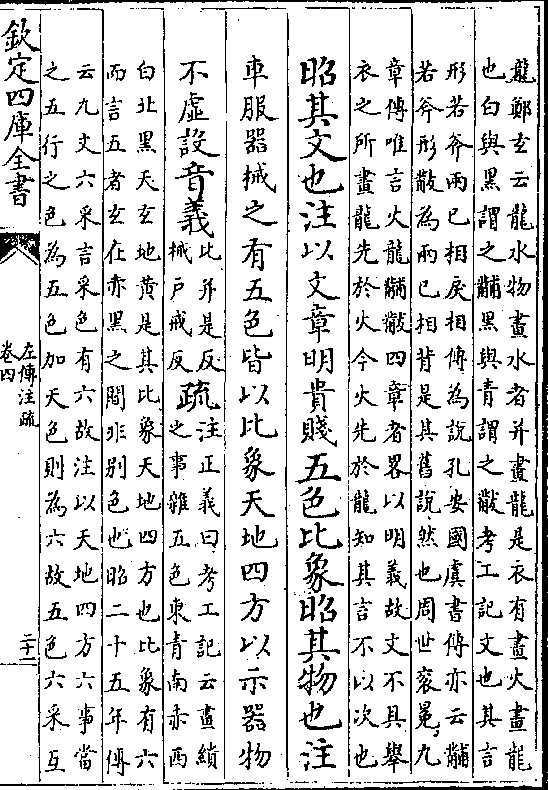 龍鄭玄云龍水物畫水者并畫龍是衣有畫火畫龍
也白與黑謂之黼黑與青謂之黻考工記文也其言
形若斧兩已相戾相傳為說孔安國虞書傳亦云黼
若斧形黻為兩已相背是其舊說然也周世衮冕九
章傳唯言火龍黼黻四章者畧以明義故文不具舉
衣之所畫龍先於火今火先於龍知其言不以次也
昭其文也注以文章明貴賤五色比象昭其物也注
車服器械之有五色皆以比象天地四方以示器物
不虛設音義
比并是反
械戶戒反
疏
注正義曰考工記云畫繢
之事雜五色東青南赤西
白北黑天玄地黃是其比象天地四方也比象有六
而言五者玄在赤黑之間非別色也昭二十五年傳
云九文六采言采色有六故注以天地四方六事當
之五行之色為五色加天色則為六故五色六采互
欽定四庫全書
左傳注疏
卷四
二十一